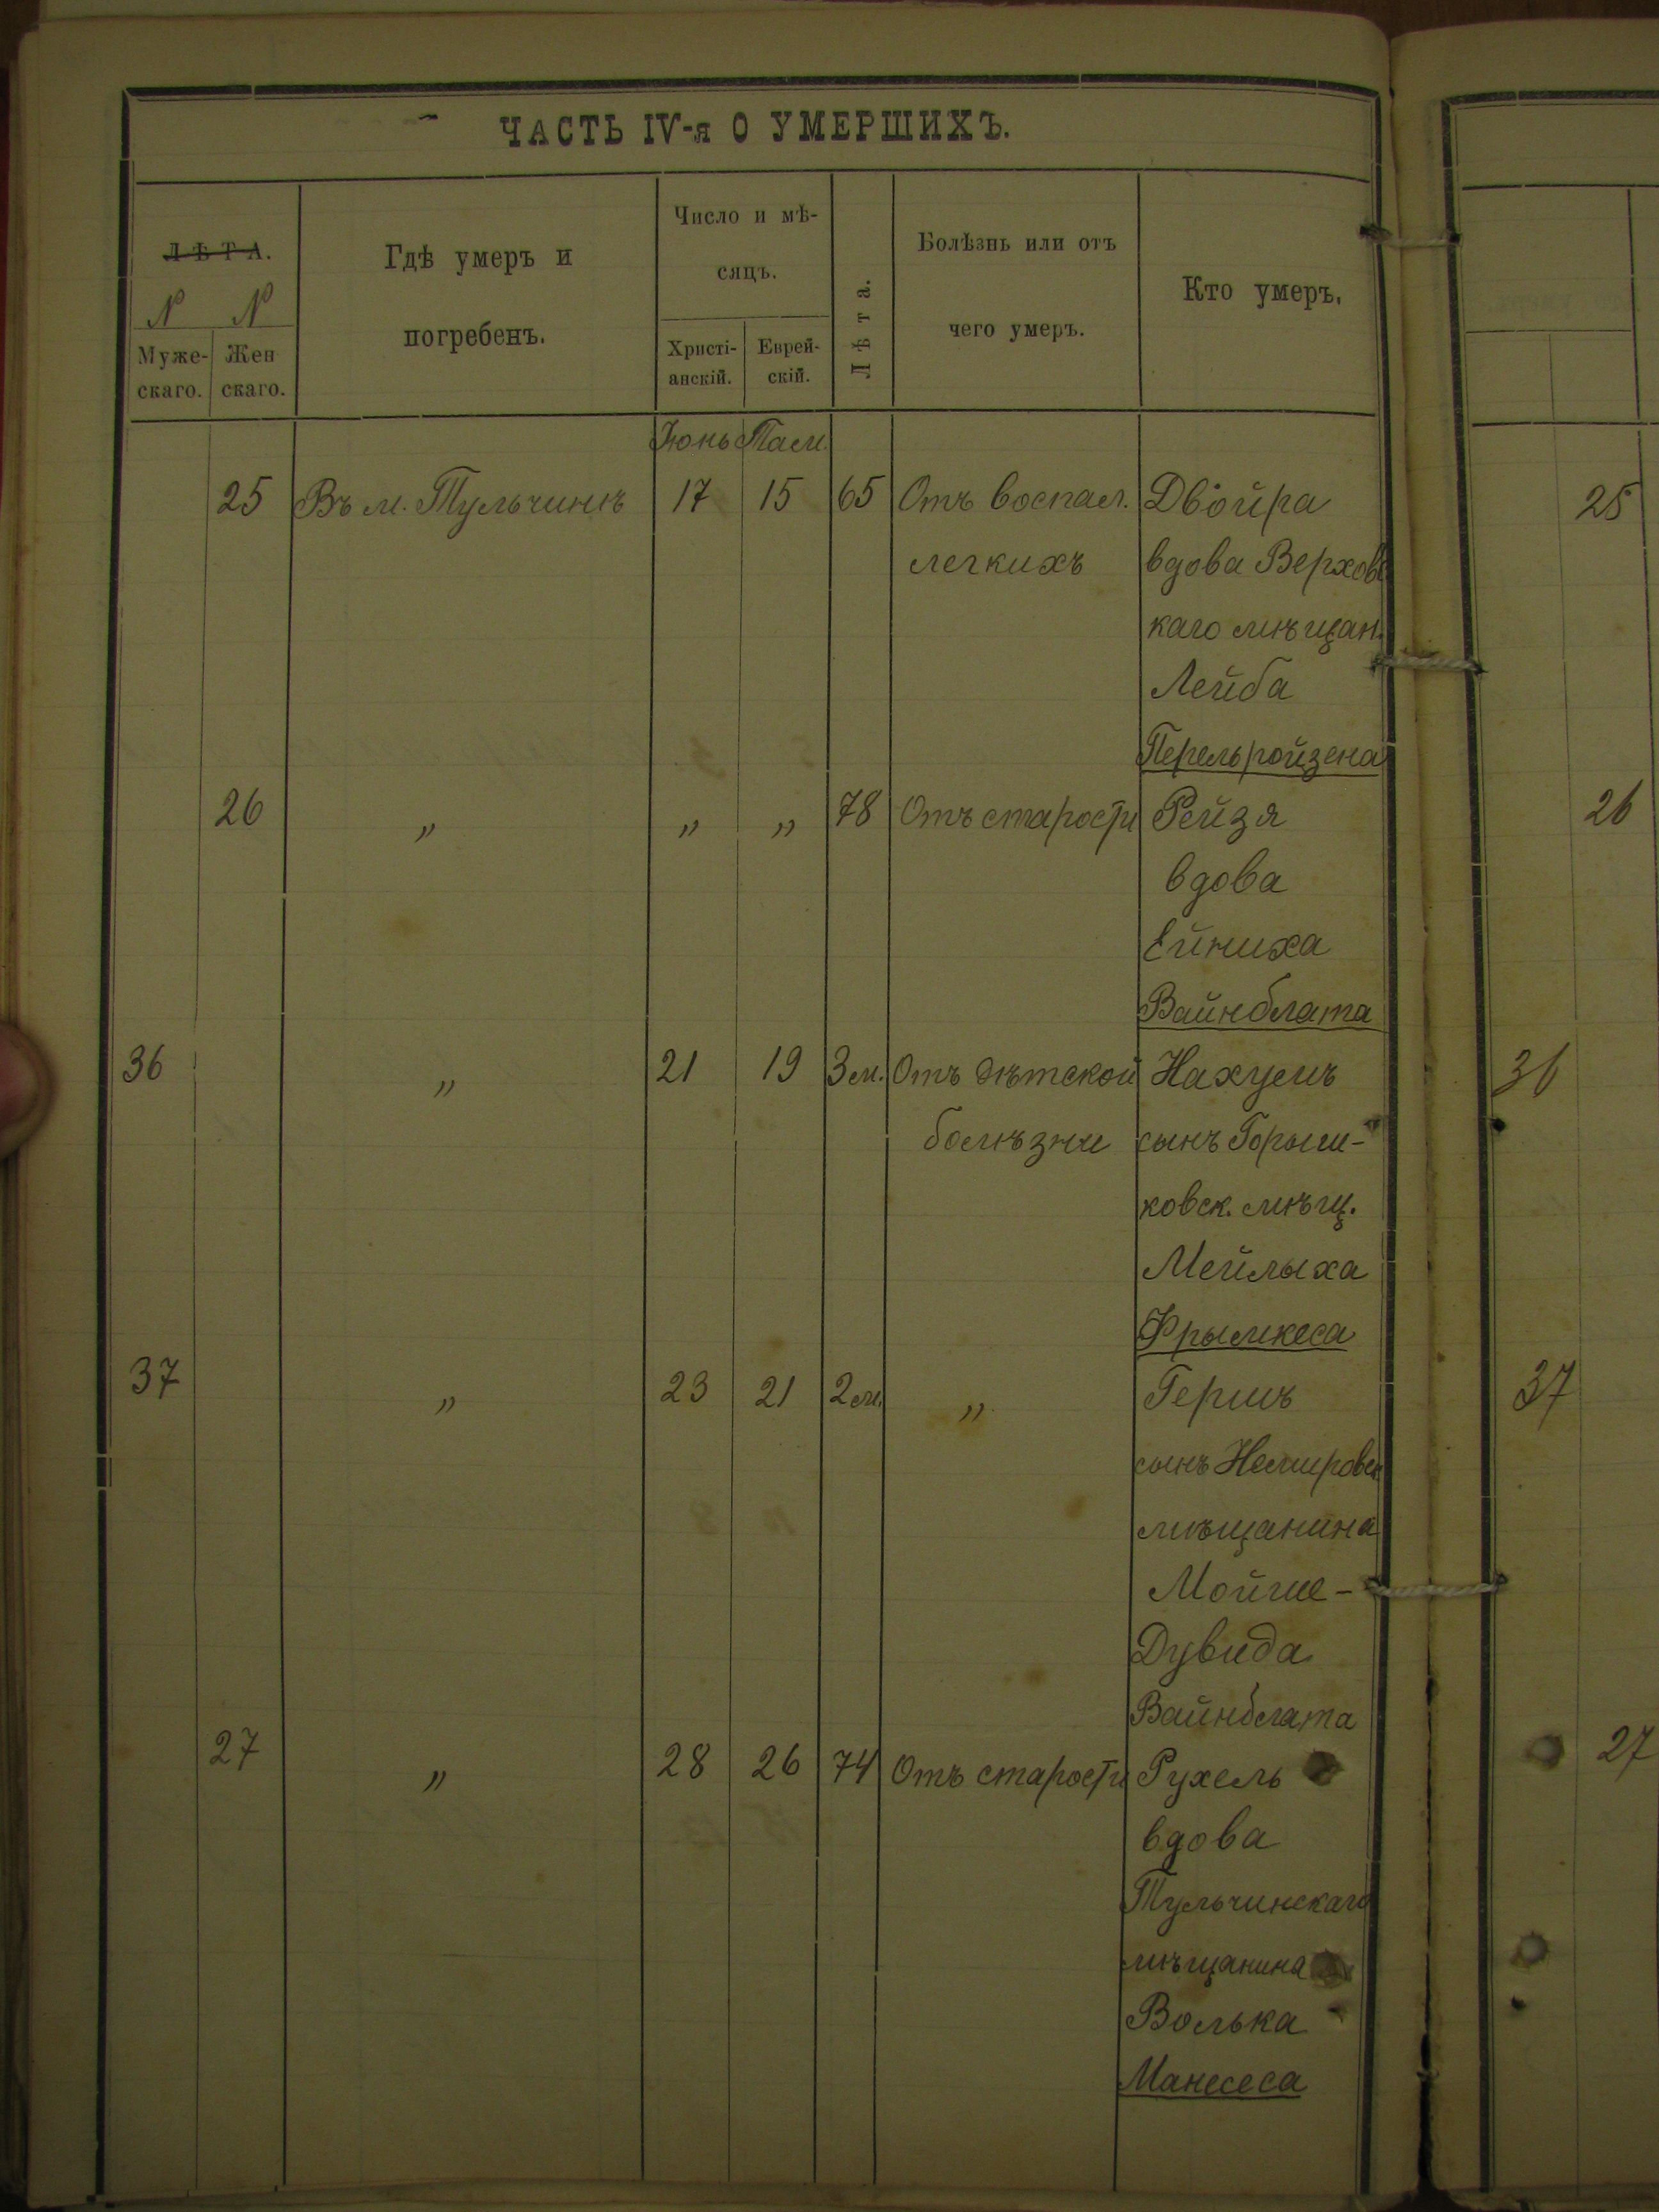 ЧАСТЬ IV-я О УМЕРШИХЪ.
ЛѢТА.
N N
Муже-скаго. Жен скаго.
Гдѣ умеръ и погребенъ.
Число и мѣ-сяцъ.
Христі-анскій. Еврей-скій.
Лѣта.
Болѣзнь или отъ чего умеръ.
Кто умеръ.
Іюнь Там.
25 Въ м. Тульчинѣ 17 15 65 Отъ воспал. Двойра 25
легкихъ вдова Верховс
каго мѣщан.
Лейба
Перельройзена
26 " " " 78 Отъ старости Рейзя 26
вдова
Ейниха
Вайнблата
36 " 21 19 3 м. Отъ дѣтской Нахумъ 36
болѣзни сынъ Горыш-
ковск. мѣщ.
Мейлыха
Фрымкеса
37 " 23 21 2 м. " Гершъ 37
сынъ Немировск
мѣщанина
Мойше-
Дувида
Вайнблата
27 " 28 26 74 Отъ старости Рухель 27
вдова
Тульчинскаго
мѣщанина
Волька
Манесеса